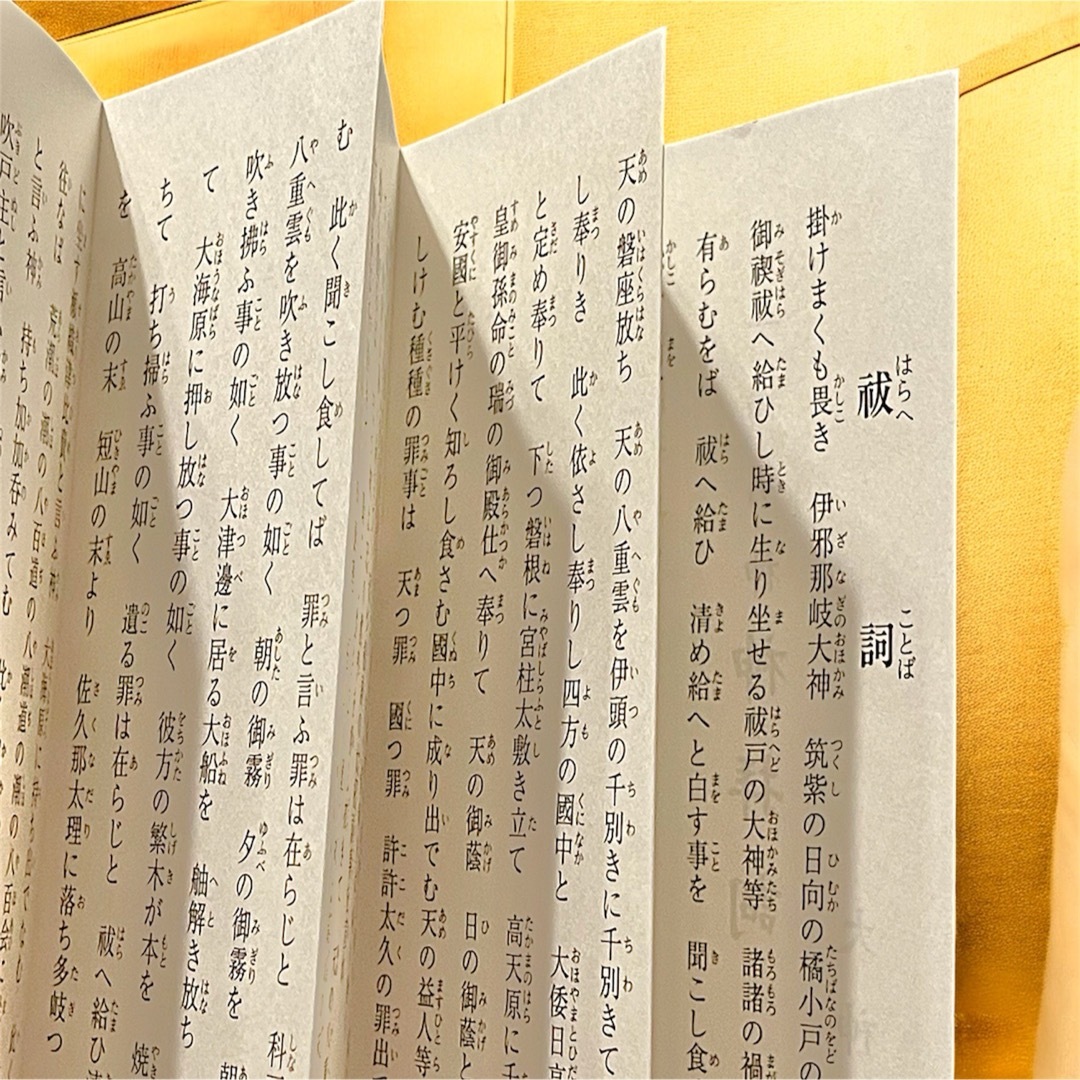 祓詞
掛けまくも畏き 伊邪那岐大神 筑紫の日向の橘小戸の
御禊祓へ給ひし時に生り坐せる祓戸の大神等 諸諸の禍
有らむをば 祓へ給ひ 清め給へと白す事を 聞こし食
天の磐座放ち 天の八重雲を伊頭の千別きに千別きて
し奉りき 此く依さし奉りし四方の國中と 大倭日高
と定め奉りて 下つ磐根に宮柱太敷き立て 高天原に千
皇御孫命の瑞の御殿仕へ奉りて 天の御蔭 日の御蔭と
安國と平けく知ろし食さむ國中に成り出でむ天の益人等
しけむ種種の罪事は 天つ罪 國つ罪 許許太久の罪出
む 此く聞こし食してば 罪と言ふ罪は在らじと 科
八重雲を吹き放つ事の如く 朝の御霧 夕の御霧を 朝
吹き拂ふ事の如く 大津邊に居る大船を 舳解き放ち
て 大海原に押し放つ事の如く 彼方の繁木が本を 焼
ちて 打ち掃ふ事の如く 遺る罪は在らじと 祓へ給ひ
を 高山の末 短山の末より 佐久那太理に落ち多岐つ
に坐す瀬織津比賣と言ふ神 大海原に持ち出でなむ
往なば 荒潮の潮の八百道の八潮道の潮の八百會
と言ふ神 持ち加加呑みてむ
吹戸主と言